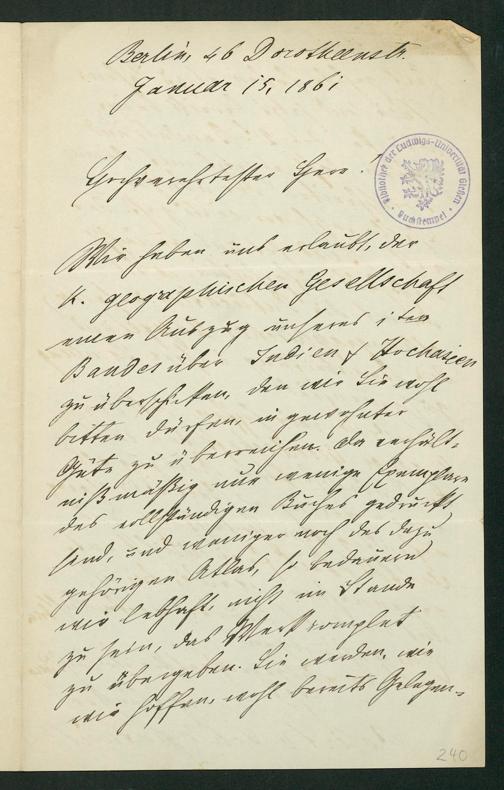 Berlin, 46 Dorotheenstr.
Januar 15, 1861
Hochverehrtester Herr!
Bibliothek der Ludwigs-Universität Gießen
Buchstempel
Wir haben uns erlaubt, der
k. geographischen Gesellschaft
einen Auszug unseres 1ten
Bandes über Indien & Hochasien
zu überschicken, den wir Sie wohl
bitten dürfen, in gewohnter
Güte zu überreichen. Da verhält-
nißmäßig nur wenige Exemplare
des vollständigen Buches gedruckt
sind, und weniger noch des dazu
gehörigen Atlas, so bedauern
wir lebhaft, nicht im Stande
zu sein, das Werk komplet
zu übergeben. Sie werden, wie
wir hoffen, wohl bereits Gelegen-
240